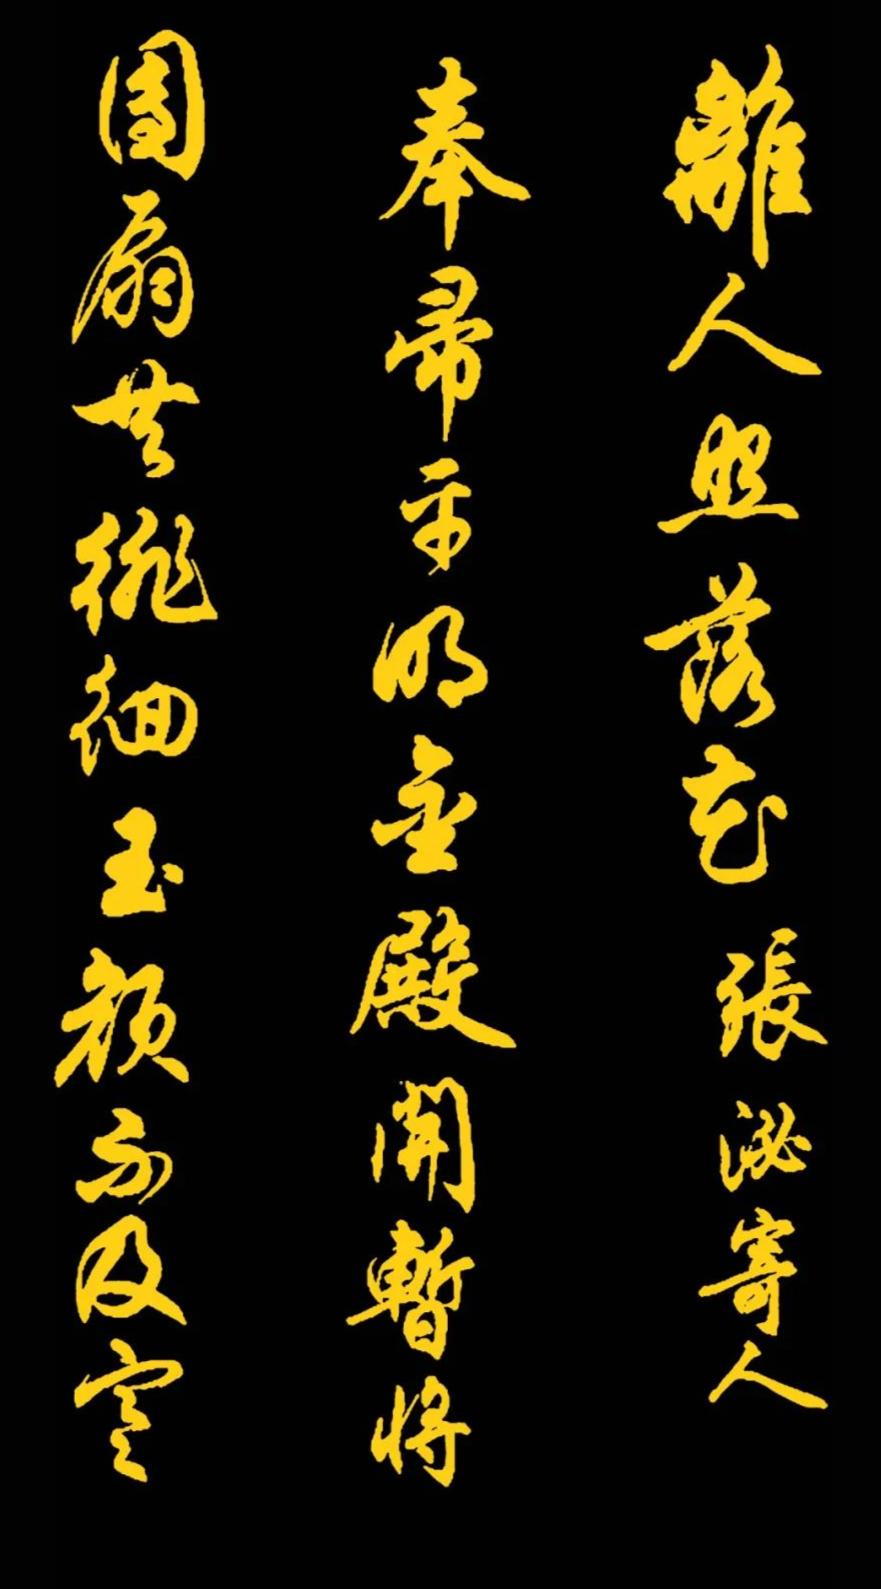 離人照落花 張泌寄人
奉帚平明金殿開暫將
團扇共徘徊玉顏不及寒